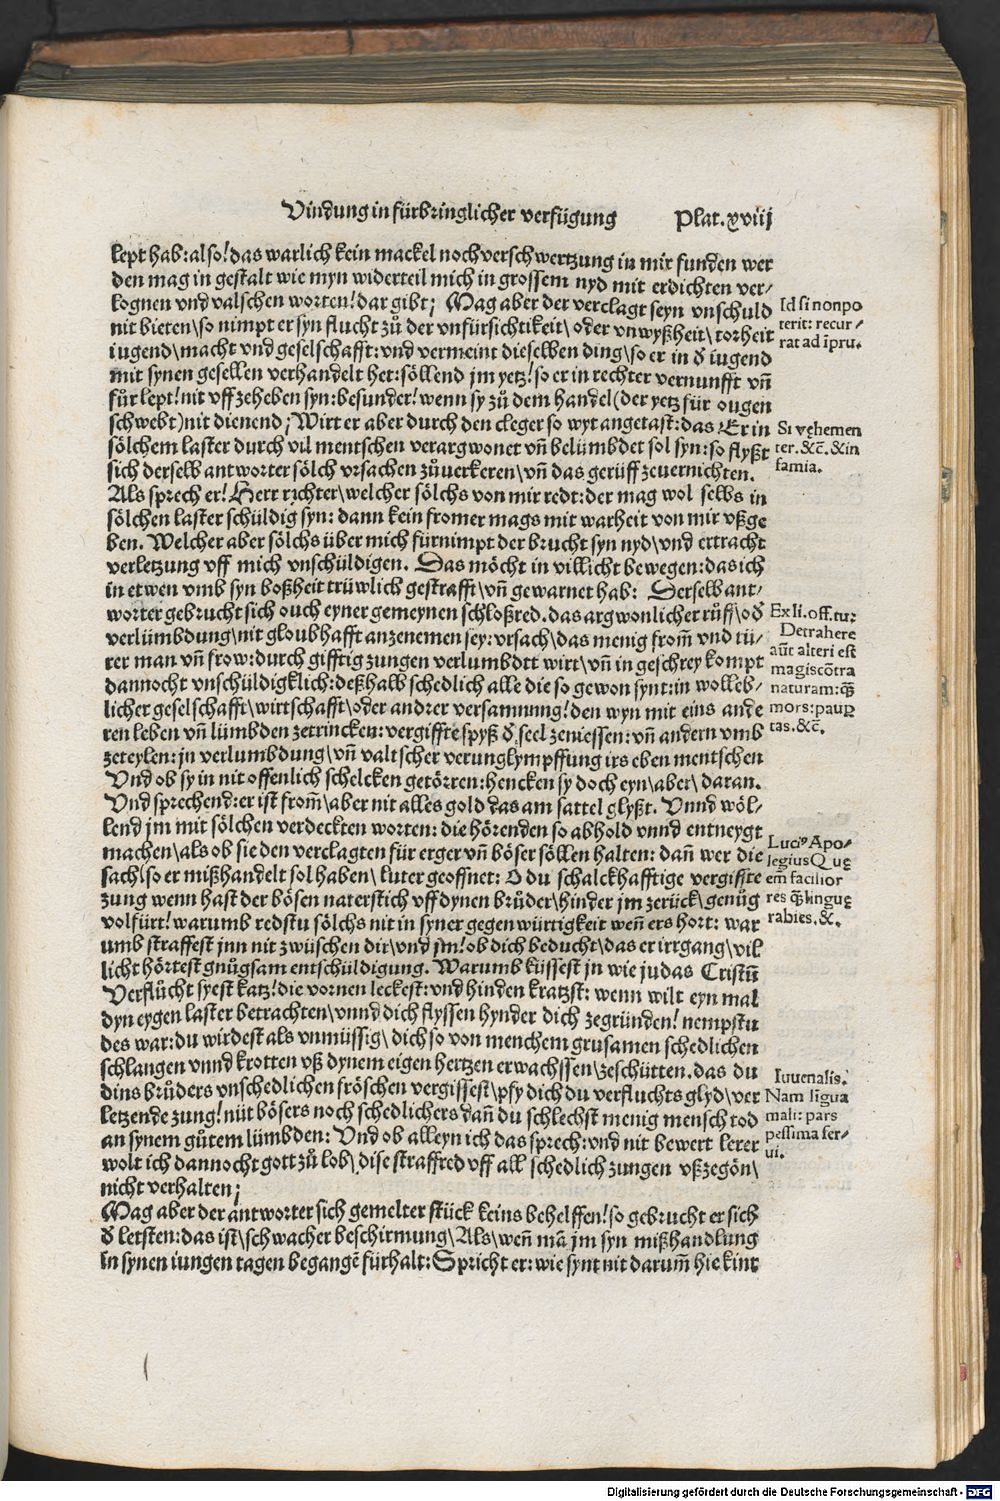 Vindung in fürbringlicher verfügung Plat. xviij
lept hab: also! das warlich kein mackel noch verschwertzung in mir funden wer
den mag in gestalt wie myn widerteil mich in grossem nyd mit erdichten ver⸗
lognen vnd valschen worten! dar gibt; Mag aber der verclagt seyn vnschuld
nit bieten\ so nimpt er syn flucht zů der vnfürsichtikeit\ oder vnwyßheit\ torheit
iugend\ macht vnd geselschafft: vnd vermeint dieselben ding\ so er in d̕ iugend
mit synen gesellen verhandelt het: söllend jm yetz! so er in rechter vernunfft vn̄
für lept! nit vff zeheben syn: besunder! wenn sy zů dem handel (der yetz für ougen
schwebt) nit dienend; Wirt er aber durch den cleger so wyt angetast: das Er in
sölchem laster durch vil mentschen verargwonet vn̄ belümbdet sol syn: so flyßt
sich derselb antworter sölch vrsachen zůuerkeren\ vn̄ das gerüff zeuernichten.
Als sprech er! Herr richter\ welcher sölchs von mir redt: der mag wol selbs in
sölchen laster schüldig syn: dann kein fromer mags mit warheit von mir vßge
ben. Welcher aber sölchs über mich fürnimpt der brucht syn nyd\ vnd ertracht
verletzung vff mich vnschüldigen. Das möcht in villicht bewegen: das ich
in etwen vmb syn boßheit trüwlich gestrafft\ vn̄ gewarnet hab: Derselb ant⸗
worter gebrucht sich ouch eyner gemeynen schloßred. das argwonlicher rüff\ od̕
verlümbdung\ nit gloubhafft anzenemen sey: vrsach\ das menig from̄ vnd tü⸗
rer man vn̄ frow: durch gifftig zungen verlumbdtt wirt\ vn̄ in geschrey kompt
dannocht vnschüldigklich: deßhalb schedlich alle die so gewon synt: in wolleb⸗
licher geselschafft\ wirtschafft\ oder andrer versamnung! den wyn mit eins ande
ren leben vn̄ lümbden zetrincken: vergiffte spyß d̕ seel zeniessen: vn̄ andern vmb
zeteylen: jn verlumbdung\ vn̄ valtscher verunglympffung irs eben mentschen
Vnd ob sy in nit offenlich schelcken getörren: hencken sy doch eyn\ aber\ daran.
Vnd sprechend: er ist from̄\ aber nit alles gold das am sattel glyßt. Vnnd wöl⸗
lend jm mit sölchen verdeckten worten: die hörenden so abhold vnnd entneygt
machen\ als ob sie den verclagten für erger vn̄ böser söllen halten: dan̄ wer die
sach\ so er mißhandelt sol haben\ luter geoffnet: O du schalckhafftige vergiffte
zung wenn hast der bösen naterstich vff dynen brůder\ hinder jm zerück\ genůg
volfürt! warumb redstu sölchs nit in syner gegenwürtigkeit wen̄ ers hort: war
umb straffest jnn nit zwüschen dir\ vnd jm! ob dich beducht\ das er irrgang\ vil
licht hörtest gnůgsam entschüldigung. Warumb küssest jn wie judas Cristū
Verflůcht syest katz! die vornen leckest: vnd hinden kratzst: wenn wilt eyn mal
dyn eygen laster betrachten\ vnnd dich flyssen hynder dich zegründen! nempstu
des war: du wirdest als vnmüssig\ dich so von menchem grusamen schedlichen
schlangen vnnd krotten vß dynem eigen hertzen erwachssen\ zeschütten. das du
dins brůders vnschedlichen fröschen vergissest\ pfy dich du verfluchts glyd\ ver
letzende zung! nüt bösers noch schedlichers dan̄ du schlechst menig mensch tod
an synem gůtem lümbden: Vnd ob alleyn ich das sprech: vnd nit bewert lerer
wolt ich dannocht gott zů lob\ dise straffred vff all schedlich zungen vßzegön\
nicht verhalten;
Mag aber der antworter sich gemelter stück keins behelffen! so gebrucht er sich
d̕ letsten: das ist\ schwacher beschirmung\ Als\ wen̄ mā jm syn mißhandlung
in synen iungen tagen begangē fürhalt: Spricht er: wie synt nit darum̄ hie kint
Id si nonpo
terit: recur⸗
rat ad īpru.
Si vehemen
ter. &c̄. &in
famia.
Ex li. off. tu⸗
Detrahere
aūt alteri est
magiscōtra
naturam: q̄
mors: paup
tas. &c̄.
Luci⁹ Apo⸗
legius Quę
em̄ facilior
res q̄ linguę
rabies. &.
Iuuenalis.
Nam ligua
mali: pars
pessima ser⸗
ui.
Digitalisierung gefördert durch die Deutsche Forschungsgemeinschaft - DFG